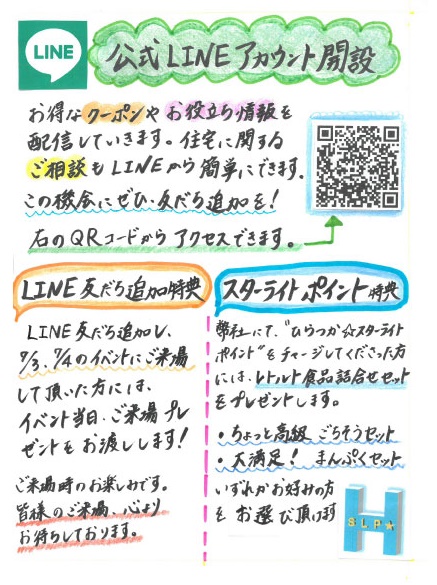 LINE
公式LINEアカウント開設
お得なクーポンやお役立ち情報を
配信していきます。住宅に関する
ご相談もLINEから簡単にできます。
この機会にぜひ友だち追加を!
右のQRコードからアクセスできます。
LINE友だち追加特典
LINE友だち追加し、
7/3、7/4のイベントにご来場
して頂いた方には、
イベント当日、ご来場プレ
ゼントをお渡しします!
ご来場時のお楽しみです。
皆様のご来場、心より
お待ちしております。
スターライトポイント特典
弊社にて、"ひらつか☆スターライト
ポイント"をチャージしてくださった方
には、レトルト食品詰合せセット
をプレゼントします。
・ちょっと高級 ごちそうセット
・大満足! まんぷくセット
いずれかお好みの方
をお選び頂けます
H
SLP★